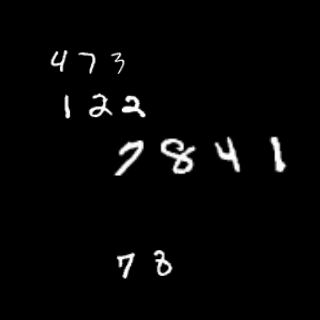 4 7 3
1 2 2
7 8 4 1
7 8